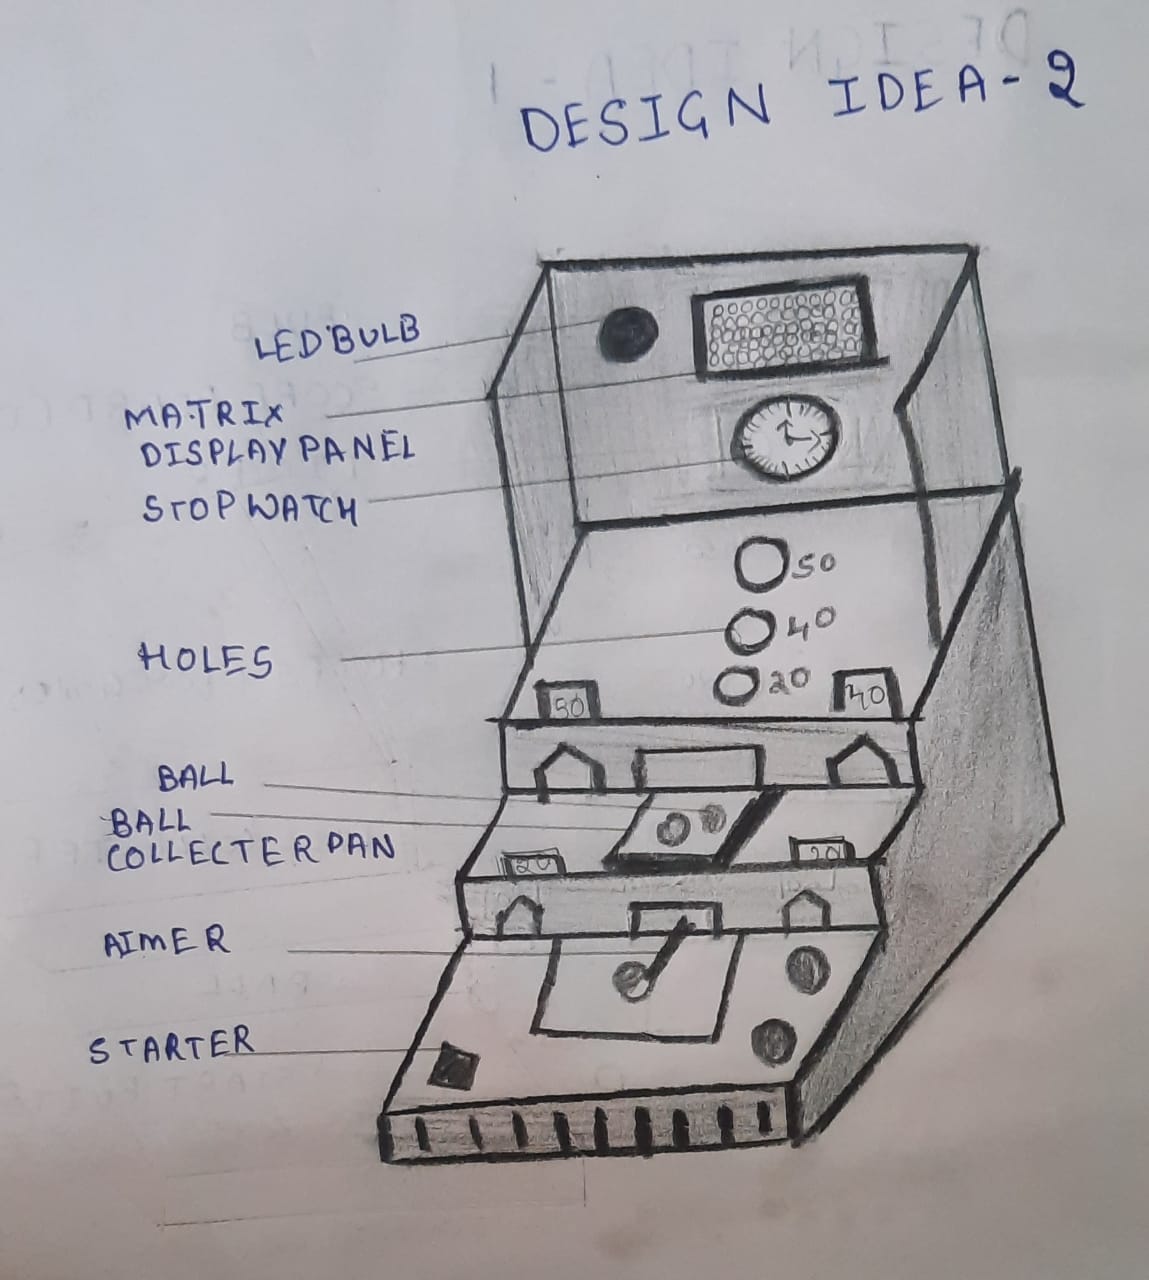 DESIGN IDEA-2
LED BULB
MATRIX
DISPLAY PANEL
STOP WATCH
50
40
HOLES
20
50
40
BALL
BALL
COLLECTER PAN
20
20
AIMER
STARTER